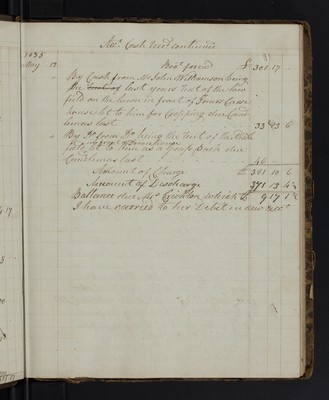 Acct Cash Recd continued
1835
May 12 Brot forwd £ 301 17
" By Cash from Mr John Williamson being
the last years rent of the law
field on the lawn in front of
house let to him for Cropping due Cand
lemas last 33 13 6
" By Do from Do being the rent of the
field let to him as a Grass park due
Candlemas last 46
Amount of Charge £ 381 10 6
Amount of Discharge 371 13 4
Ballance due Mrs Crichton which £ 9 17 1
I have carried to her Debit in new Acct